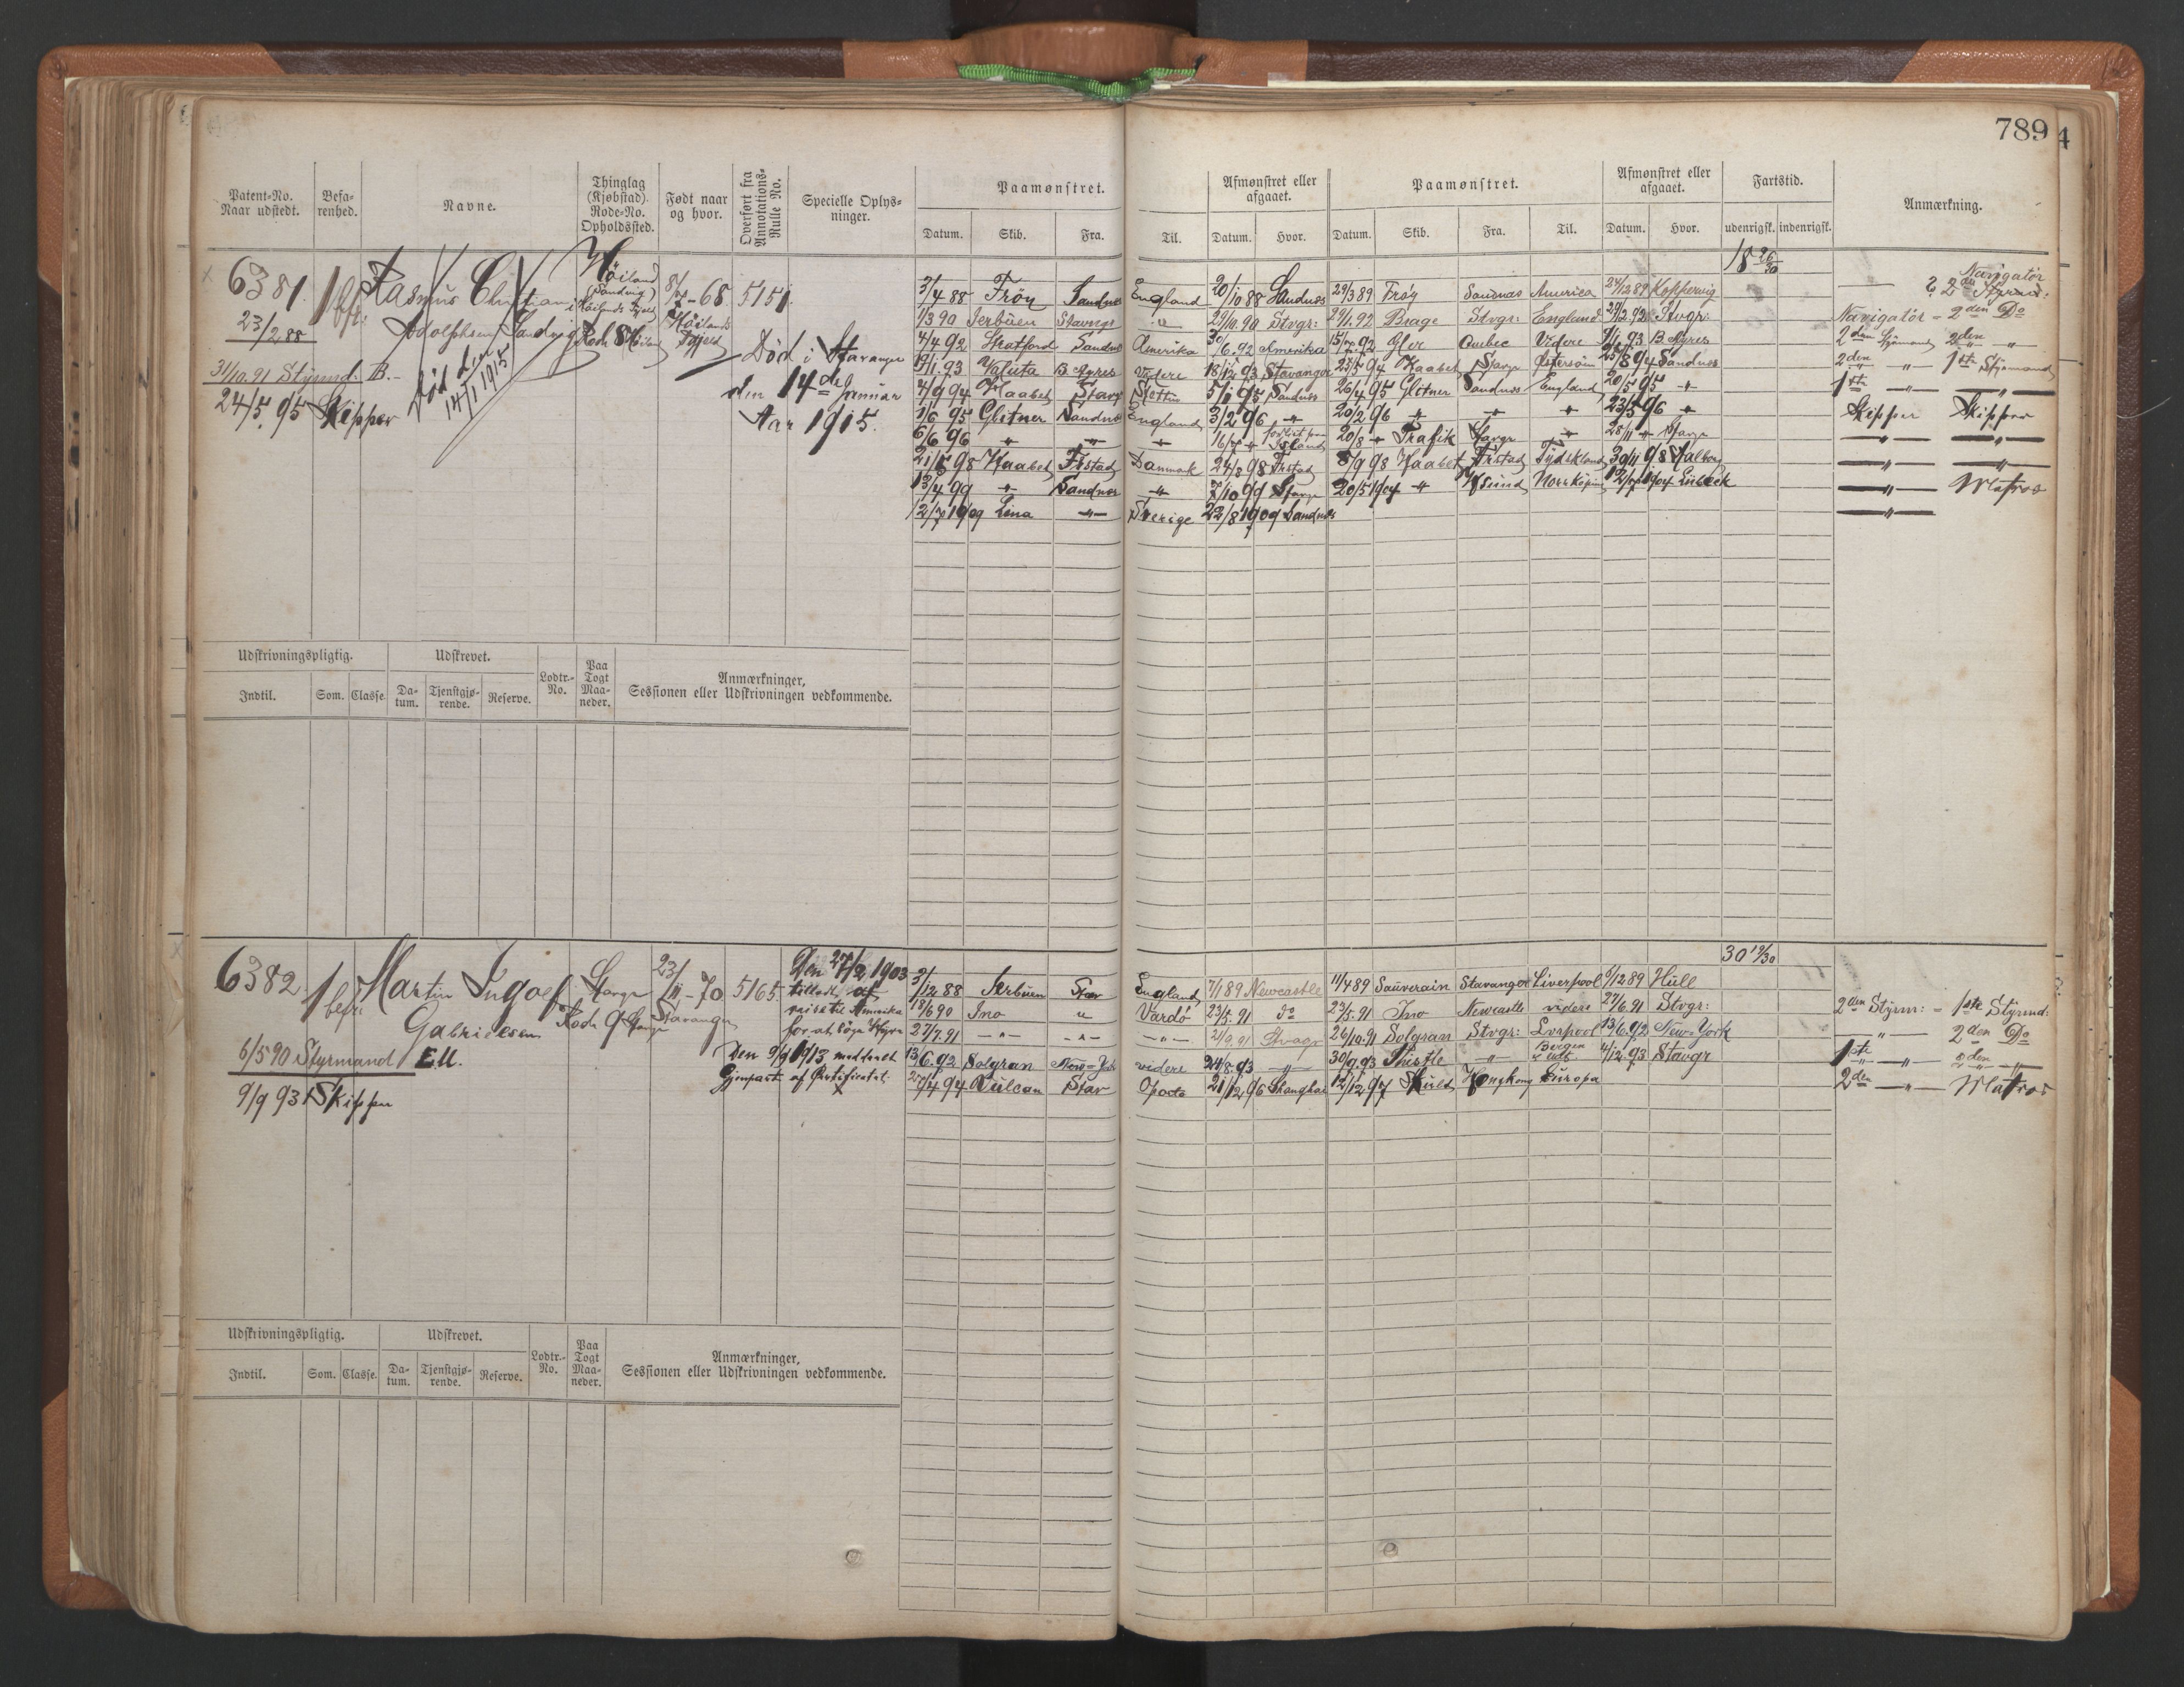 789
Patent-No. Naar udstedt. Befa-renhed. Navne. Thinglag (Kjøbstad). Rode-No. Opholdssted. Født naar og hvor. Overført fra Annotations-Rulle No. Specielle Oplys-ninger. Paamønstret. Afmønstret eller afgaaet. Paamønstret. Afmønstret eller afgaaet. Fartstid. Anmærkning.
Datum. Skib. Fra. Til. Datum. Hvor. Datum. Skib. Fra. Til. Datum. Hvor. udenrigsk. indenrigsk.
6381. 1 bfr: Rasmus Christian Adolfsen Sandvig
23/2 88
31/10.91 Styrmd. B.-
24/5.95 Skipper
Død den 14/1 1915
Höiland (Sandvig) Höilands Fjeld
Rode 8
-68 5151.
Död i Stavanger
den 14de Januar
Aar 1915.
18 26/30
3/4 88 Fröy Sandnes England 20/10 88 Sandnes 29/3 89 Fröy Sandnæs America 24/12 89 Koppervig
1/3 90 Jerbüen Stavngr " 29/10.90 Stvgr: 29/1.92 Brage Stvgr: England 29/2.92 Stvgr:
4/4 92 Stratford Sandns Amerika 30/6.92 Amerika 15/7.92 Gler Qubec Videre 9/1 93 B. Ayres
19/1.93 Valuta B. Ayres Videre 18/12 93 Stavanger 25/5 94 Haabet Stavgr Östersöin 25/8 94 Sandnes
4/9 94 Haabet Stavgr Stettin 5/1 95 Sandnes 26/4 95 Glitner Sandnes England 20/5 95 "
1/6 95 Glitner Sandns England 3/2 96 " 20/2 96 " " " 23/5 96 "
6/6 96 " " " 16/7 " forlist paa Island 20/8 " Trafik Stavgr " 28/11 " Stavgr
21/5 98 Haabet Frstad Danmark 24/8 98 Frstad 8/9 98 Haabet Frstad Tydskland 30/11 98 Aalborg
13/4 99 " Sandnes " 7/10 99 Stavgr 20/5 1904 " Krsund Norrköping 12/7 1904 Lübeck
12/7 1909 Lina " Sverige 22/8 1909 Sandnes
Navigatör
— & 2den Styrmd:
Navigatör = 2den Do
2den Styrmand 2den "
2den " 1ste Styrmand
1ste " "
Skipper Skipper
" "
" "
" Matros
"
Udskrivningspligtig. Udskrevet. Lodtr.-No. Paa Togt Maa-neder. Anmærkninger, Sessionen eller Udskrivningen vedkommende.
Indtil. Som. Classe. Da-tum. Tjenstgjø-rende. Reserve.
6382 1 bfr: Martin Ingolf Gabrielsen
Stavgr Rode 9 Stavgr
23/11-70 Stavanger
5165.
6/5 90 Styrmand Ell.
9/9 93 Skipper
Den 27/2 1903
tilladt at
reise til Amerika
for at söge Hyre
Den 9/9 1913 meddelt
Gjenpart af Certificatet.
30 19/30
3/12 88 Jerbüen Stav England 7/1 89 Newcastle 11/4 89 Sauverain Stavanger Liverpool 6/12 89 Hull
18/6 90 Ino " Vardö 23/5.91 do 23/5.91 Ino Newcastle videre 27/6.91 Stvgr:
27/7.91 " " " 2/9.91 Stvagr 26/10.91 Solgran Stvgr: Lverpool 13/6.92 New-York
13/6.92 Solgran New-York videre 24/8.93 " 30/9.93 Thistle " Bergen & Udl: 4/12.93 Stavgr
25/4 94 Vulcan Stav Oporto 21/12 96 Shanghai 12/12 97 Skuld Hongkong Europa
2den Styrm: = 1ste Styrmd:
" 2den Do
1ste " 2den "
2den " Matros
Udskrivningspligtig. Udskrevet. Lodtr.-No. Paa Togt Maa-neder. Anmærkninger, Sessionen eller Udskrivningen vedkommende.
Indtil. Som. Classe. Da-tum. Tjenstgjø-rende. Reserve.